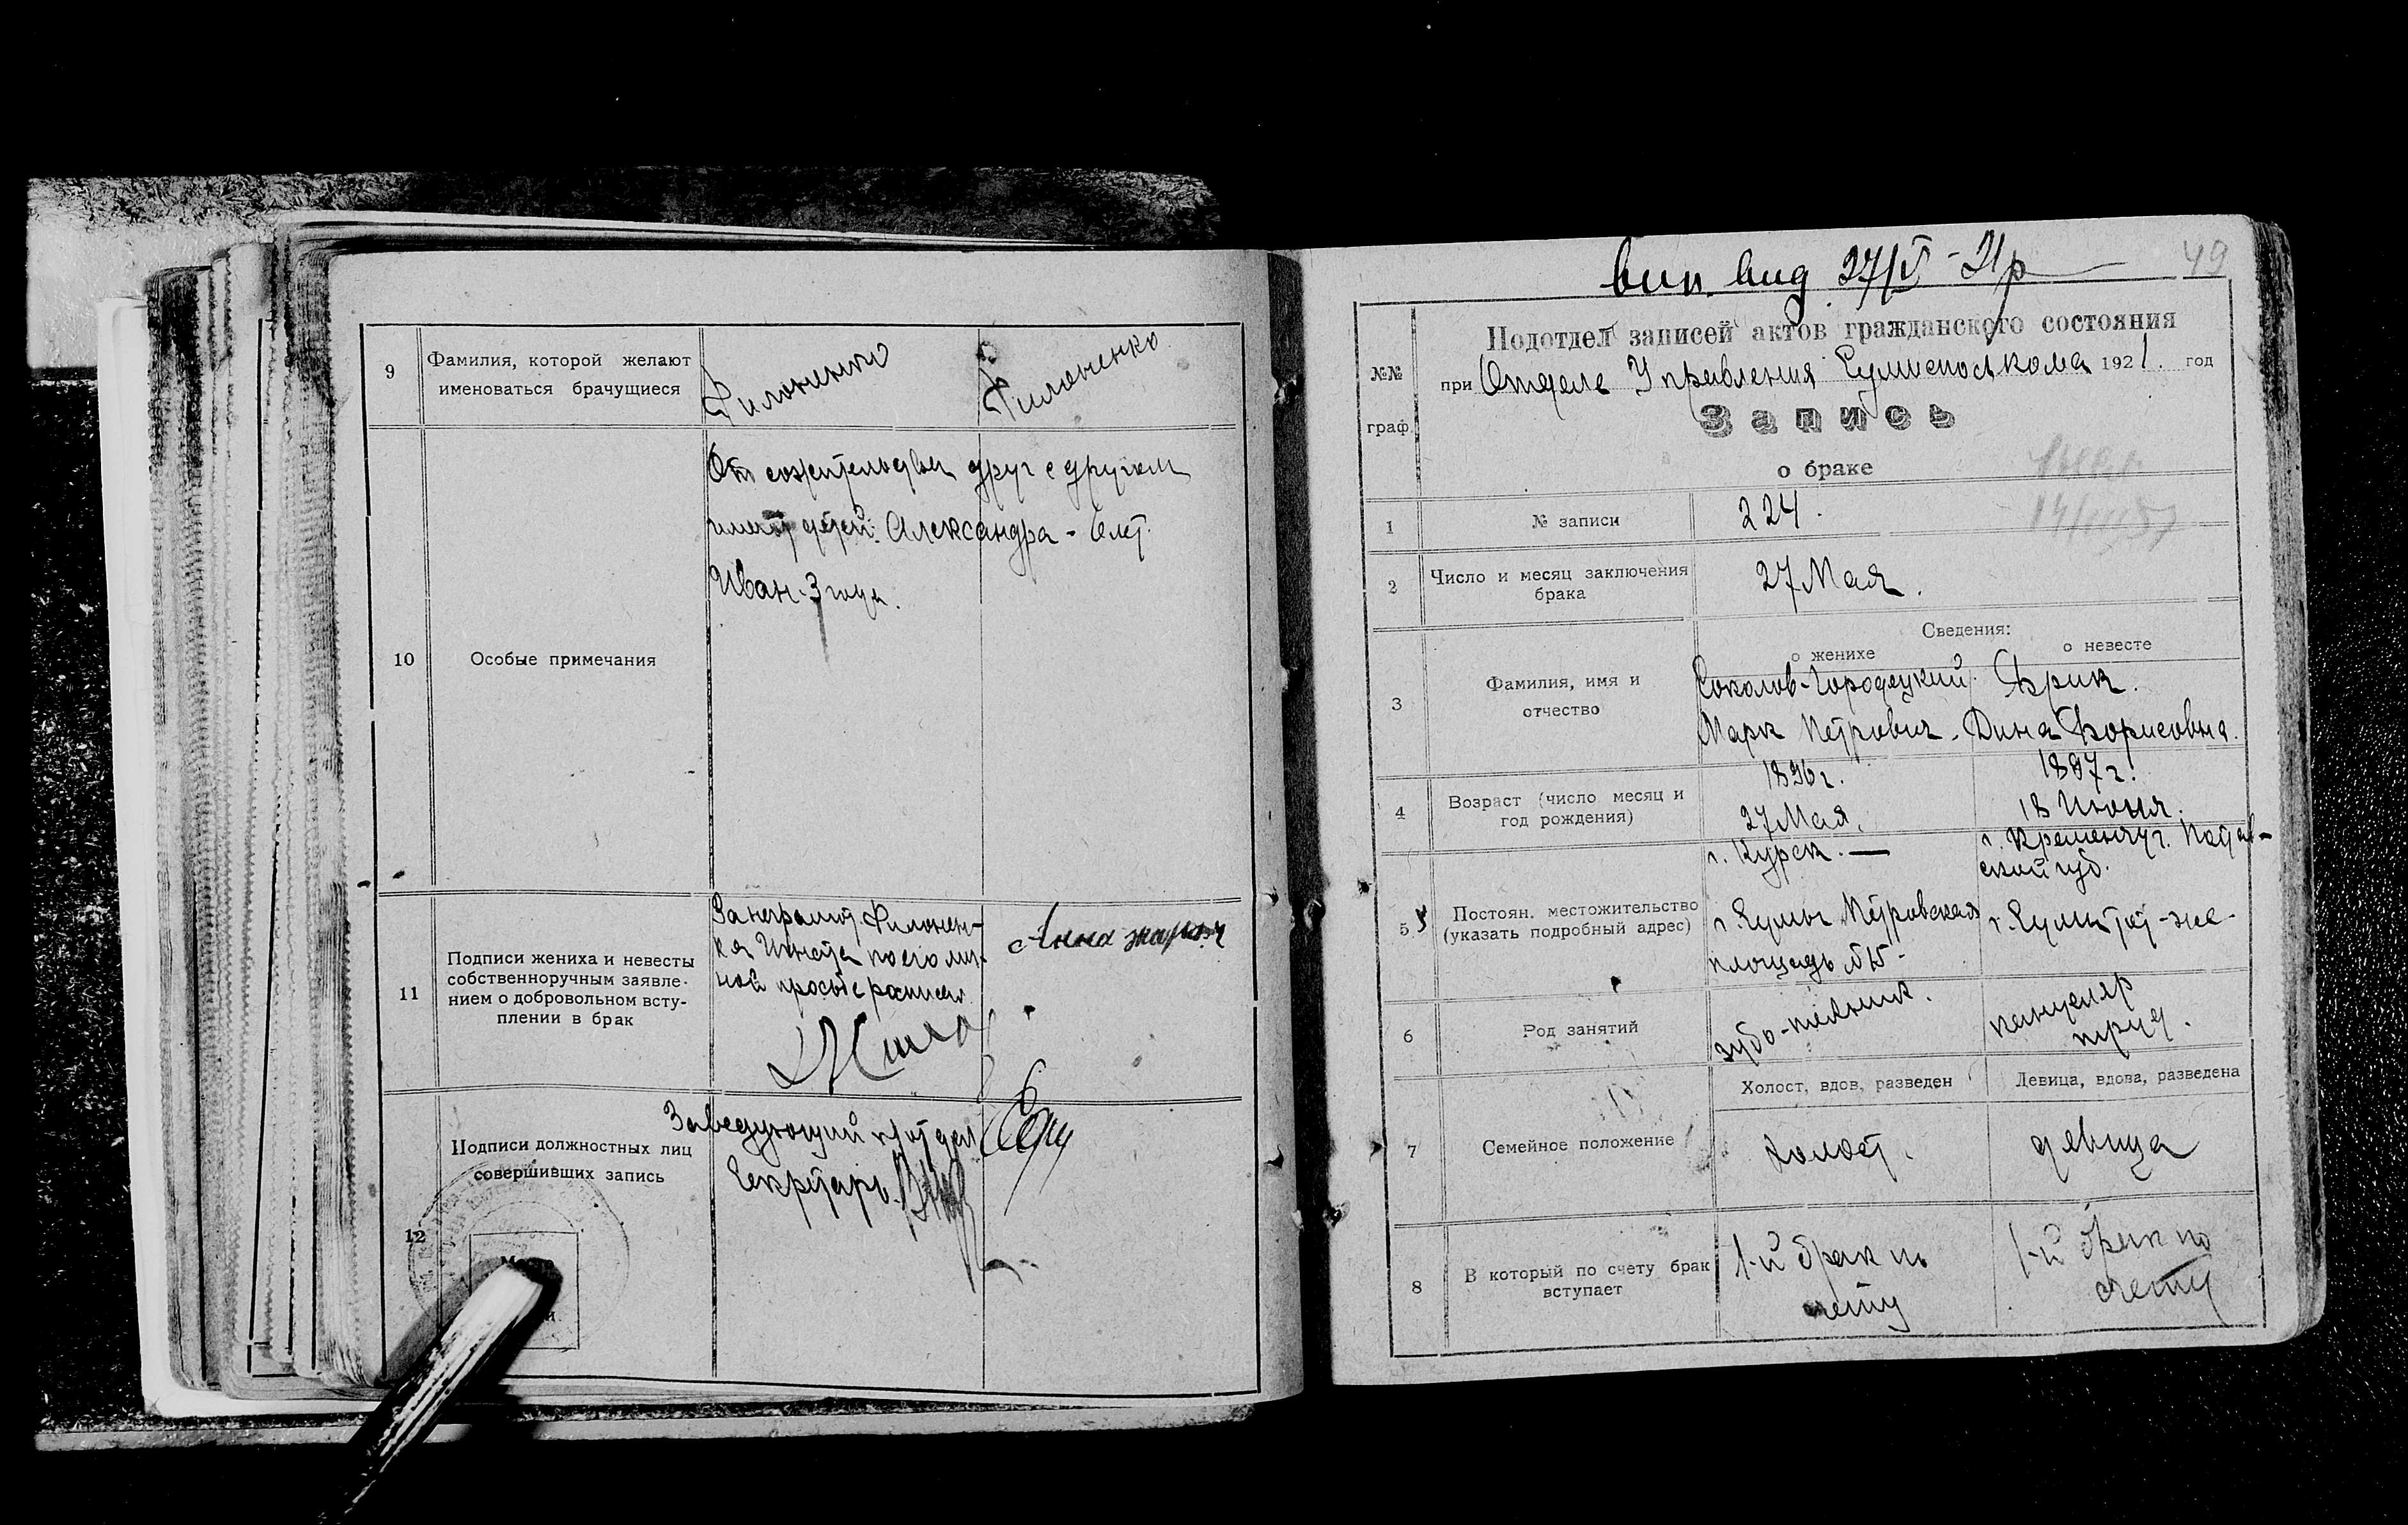 9
Фамилия, которой желают
именоваться брачущиеся
Филоненко
Филоненко
10
Особые примечания
От сожительства друг с другом
имеют детей: Александра - 6 лет.
Иван - 3 года.
11
Подписи жениха и невесты
собственноручным заявле-
нием о добровольном всту-
плении в брак
За неграмот. Филонен-
ка Игната по его лич-
ной просьбе расписался
Анна
12
Подписи должностных лиц
совершивших запись
Заведующий п/отдел
Секретарь
49
вип. вид 27/V - 21р
№№
граф.
Подотдел записей актов гражданского состояния
при Отделе Управления Сумисполкома 1921. год
Запись
о браке
1
№ записи
224.
2
Число и месяц заключения
брака
27 Мая.
Сведения:
о женихе
о невесте
3
Фамилия, имя и
отчество
Соколов-Городецкий
Марк Петрович.
Брик.
Дина Борисовна.
4
Возраст (число месяц и
год рождения)
1896 г.
27 Мая.
г. Курск. —
1897 г.
18 Июня.
г. Кременчуг. Полтав-
ской губ.
5
Постоян. местожительство
(указать подробный адрес)
г. Сумы Петровская
площадь №15-
г. Сумы там-же-
6
Род занятий
зубо-техник.
канцеляр
труд.
7
Семейное положение
Холост, вдов, разведен
Девица, вдова, разведена
холост.
девица
8
В который по счету брак
вступает
1-й брак по
счету
1-й брак по
счету